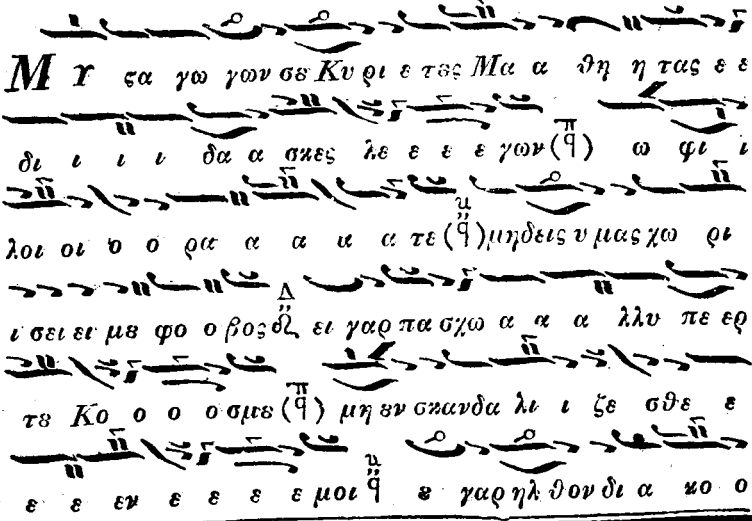 Μυ ςα γω γων σε Κυ ρι ε τες Μα α θη η τας ε ε
δι ι ι ι δα α σκες λε ε ε ε γων (π̅ q) ω φι ι
λοι οι ο ο ρα α α α α τε (q) μηδεις υ μας χω ρι
ι σει ει με φο ο βος Δ ει γαρ πα σχω α α α λλυ πε ερ
τȣ Κο ο ο ο σμε (π̅ q) μη εν σκανδα λι ι ζε σθε ε
ε ε εν ε ε ε ε μοι q ȣ γαρ ηλ θον δι α κο ο